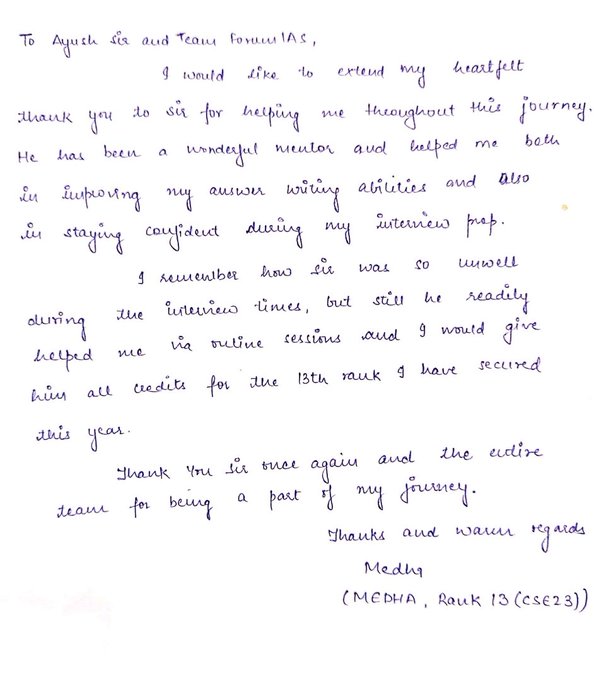 To Ayush sir and Team ForumIAS,
I would like to extend my heartfelt
thank you to sir for helping me throughout this journey.
He has been a wonderful mentor and helped me both
in improving my answer writing abilities and also
in staying confident during my interview prep.
I remember how sir was so unwell
during the interview times, but still he readily
helped me via online sessions and I would give
him all credits for the 13th rank I have secured
this year.
Thank You sir once again and the entire
team for being a part of my journey.
Thanks and warm regards
Medha
(MEDHA, Rank 13 (CSE23))